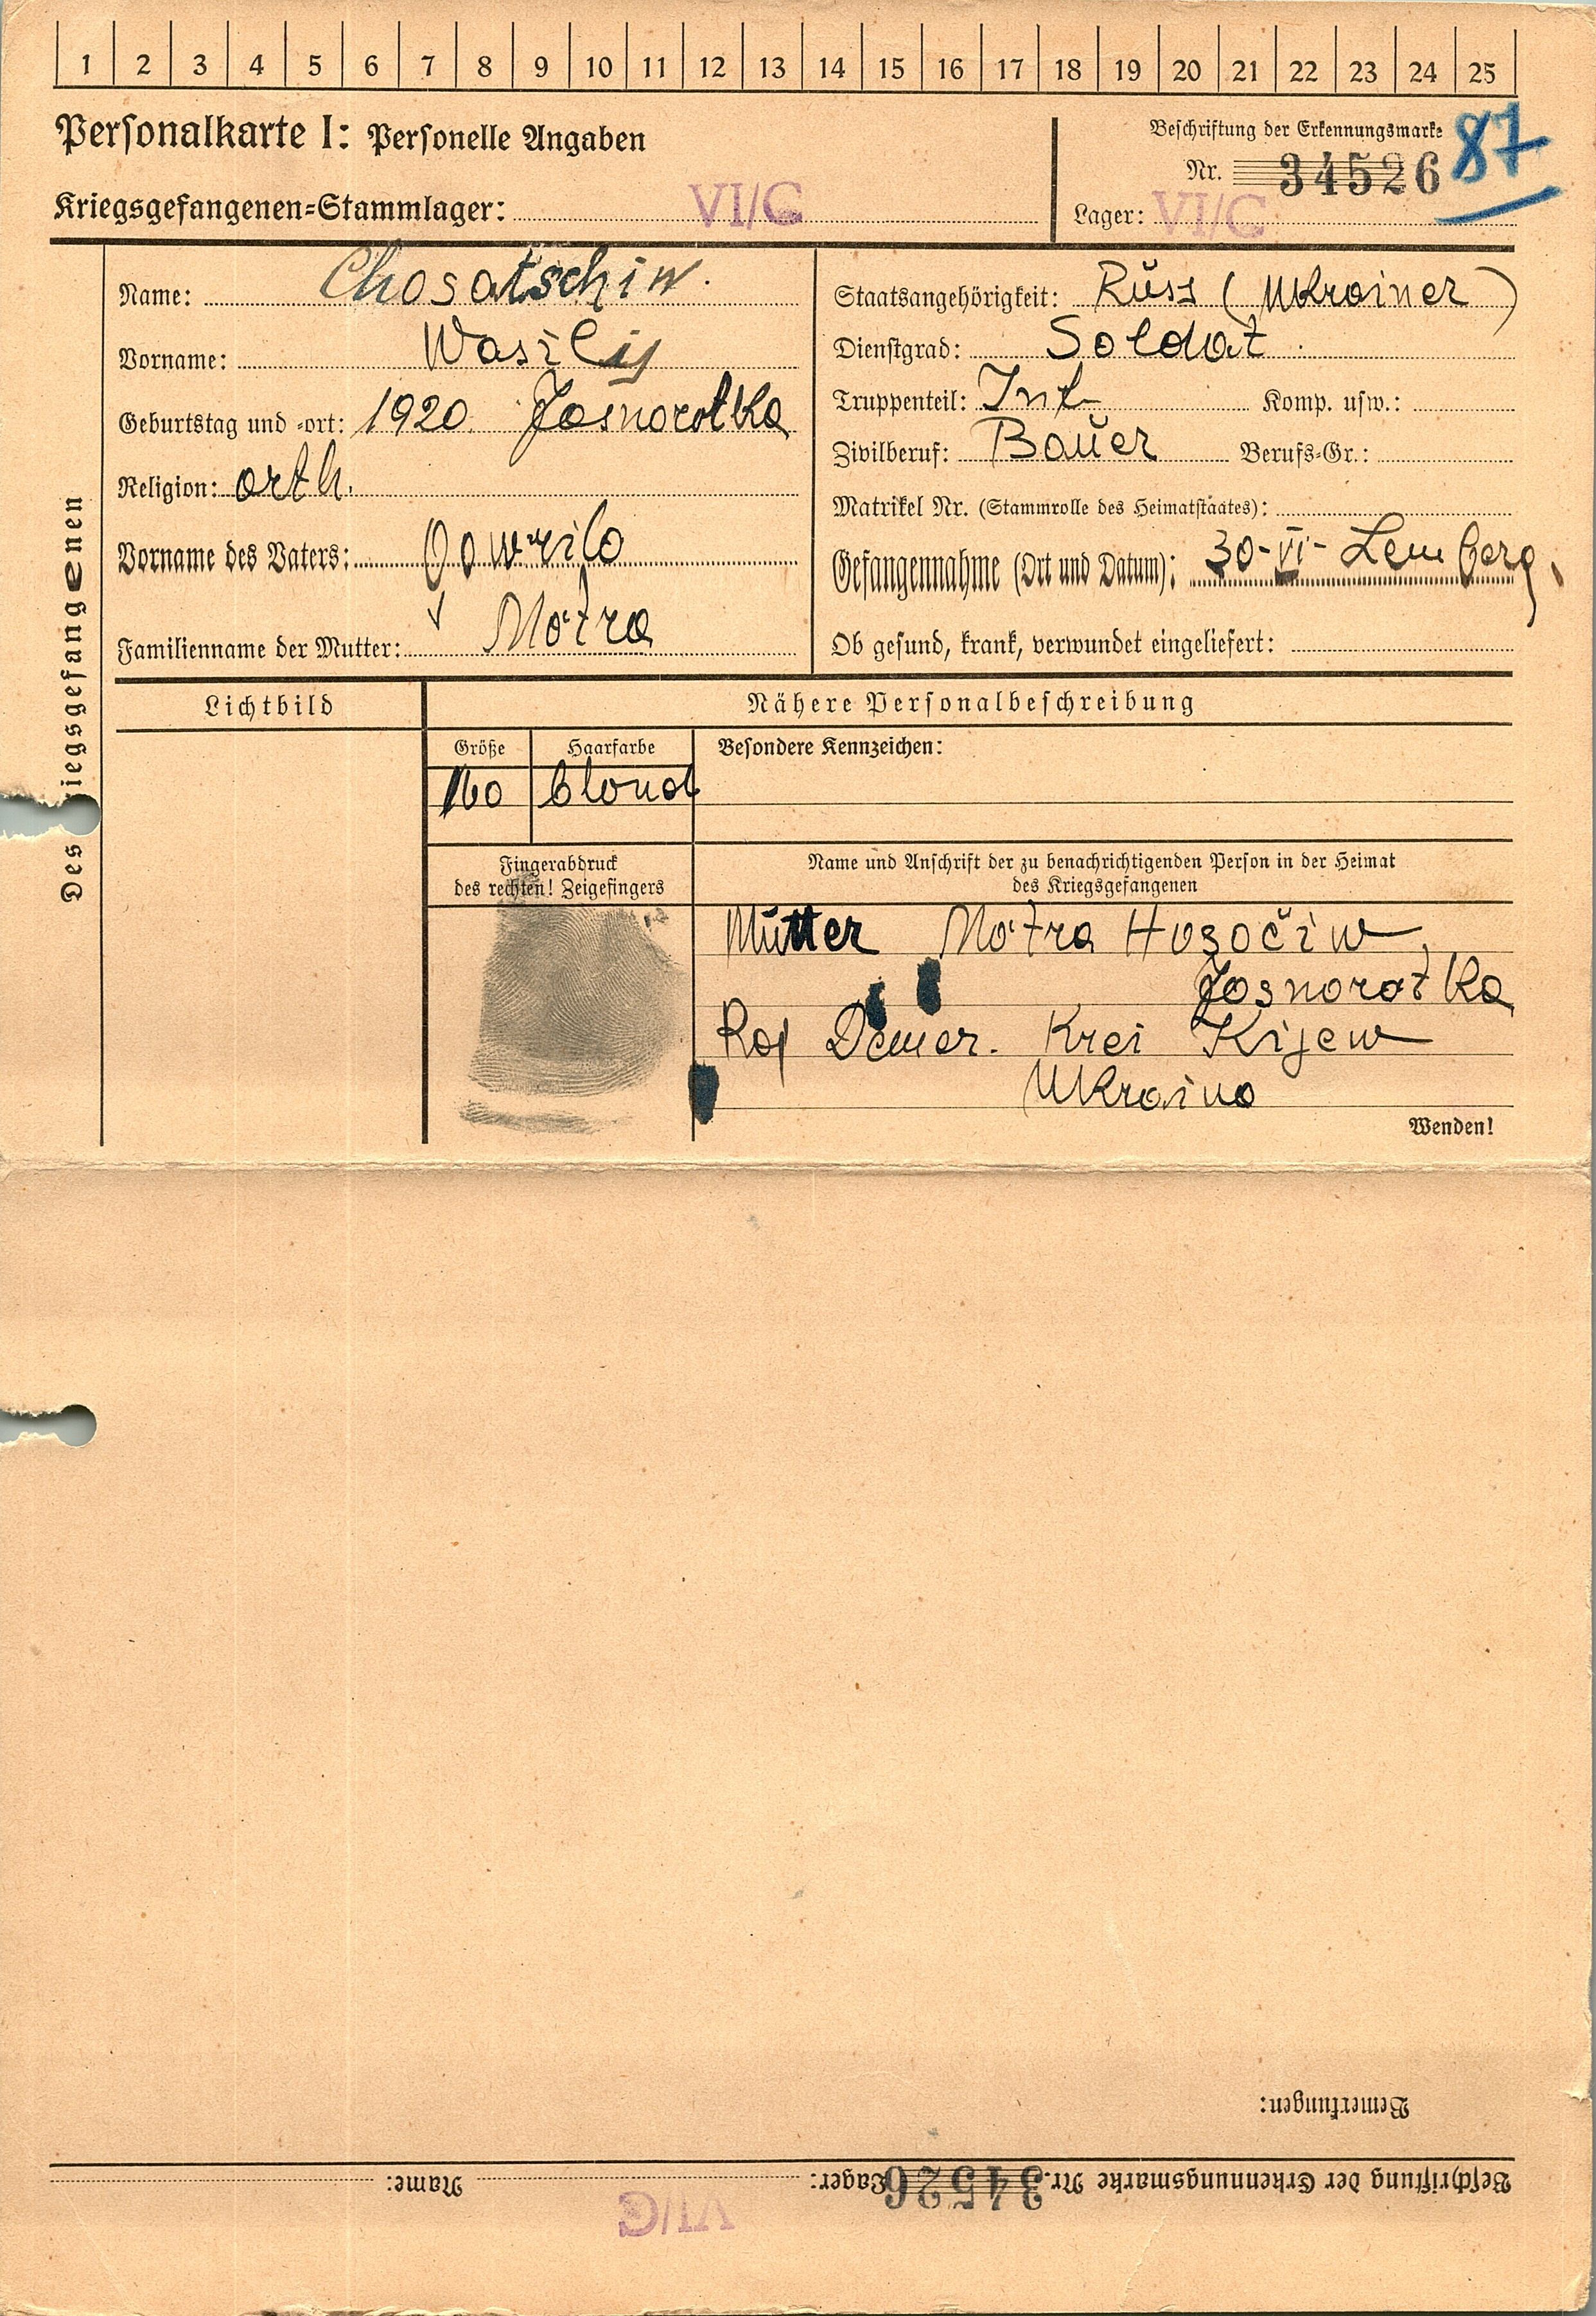 1 2 3 4 5 6 7 8 9 10 11 12 13 14 15 16 17 18 19 20 21 22 23 24 25
Personalkarte I: Personelle Angaben
Kriegsgefangenen=Stammlager: VI/C
Beschriftung der Erkennungsmarke
87
Nr. 34526
Lager: VI/C
Des iegsgefangenen
Name: Chosatschiw.
Vorname: Wasilij
Geburtstag und =ort: 1920 Jasnorotka
Religion: orth.
Vorname des Vaters: Gawrilo
Familienname der Mutter: Motra
Staatsangehörigkeit: Russ (Ukrainer)
Dienstgrad: Soldat
Truppenteil: Inf Komp. usw.:
Zivilberuf: Bauer Berufs=Gr.:
Matrikel Nr. (Stammrolle des Heimatstaates):
Gefangennahme (Ort und Datum): 30-VI- Lemberg
Ob gesund, krank, verwundet eingeliefert:
Lichtbild
Nähere Personalbeschreibung
Größe Haarfarbe Besondere Kennzeichen:
160 blond
Fingerabdruck
des rechten! Zeigefingers
Name und Anschrift der zu benachrichtigenden Person in der Heimat
des Kriegsgefangenen
Mutter Motra Hozočiw,
Jasnorotka
Raj Demer. Krei Kijew
Ukraina
Wenden!
Bemerkungen:
Beschriftung der Erkennungsmarke Nr. 34526 Lager: Name:
VI/C